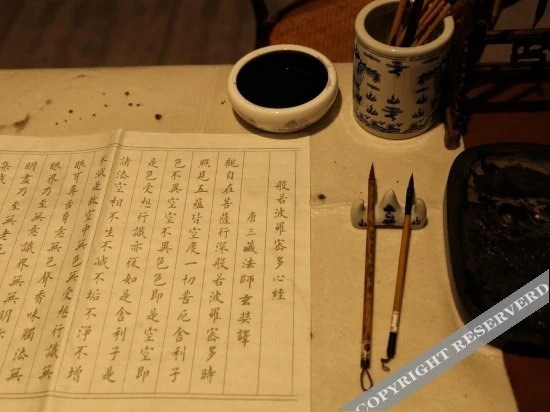 般若波羅蜜多心經
唐三藏法師玄奘譯
觀自在菩薩行深般若波羅蜜多時
照見五蘊皆空度一切苦厄舍利子
色不異空空不異色色即是空空即
是色受想行識亦復如是舍利子是
諸法空相不生不滅不垢不淨不增
不減是故空中無色無受想行識無
眼耳鼻舌身意無色聲香味觸法無
眼界乃至無意識界無無明亦
明盡乃至無老死
集滅
COPYRIGHT RESERVED